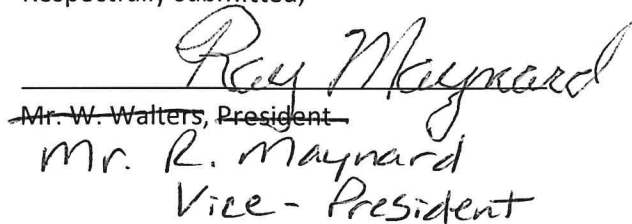 Respectfully submitted,
Ray Maynard
Mr. W. Walters, President
Mr. R. Maynard
Vice - President